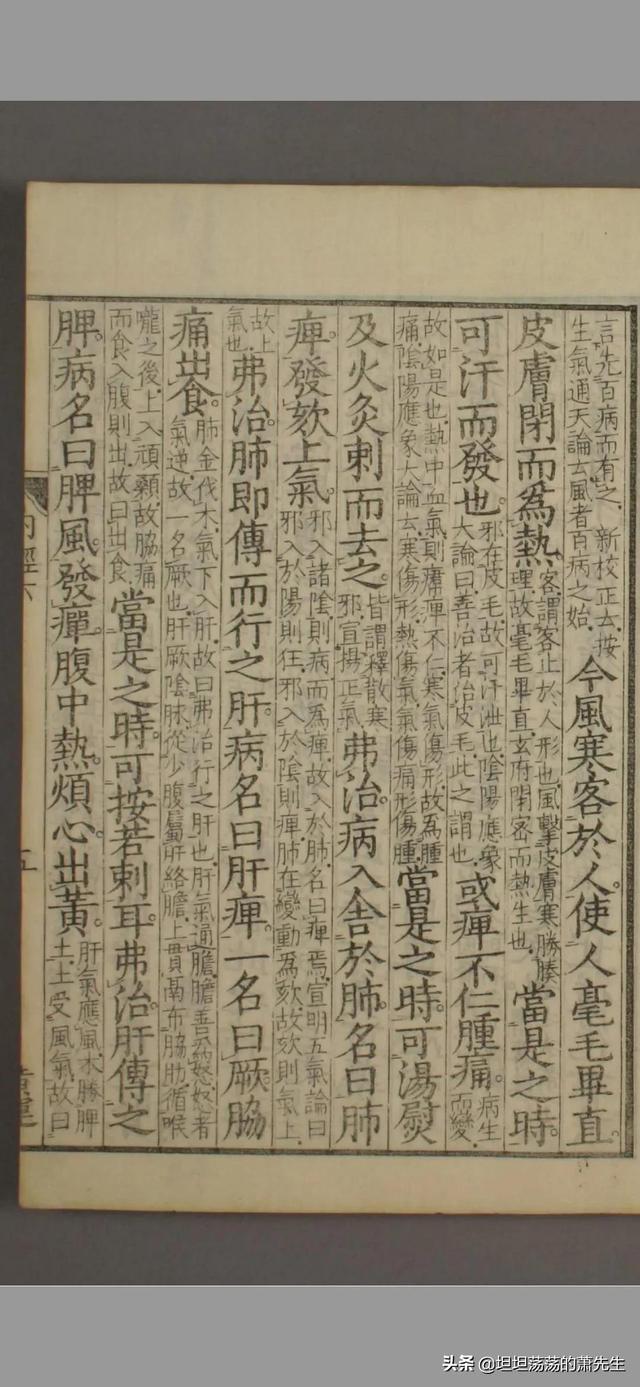 言先百病而有之　新校正云按
生氣通天論云風者百病之始
今風寒客於人使人毫毛畢直
皮膚閉而為熱
客謂客止於人形也風擊皮膚寒勝腠
理故毫毛畢直玄府閉密而熱生也
當是之時
可汗而發也
邪在皮毛故可汗泄也陰陽應象
大論曰善治者治皮毛此之謂也
或痺不仁腫痛
病生
而變
故如是也熱中血氣則㾓痺不仁寒氣傷形故為腫
痛陰陽應象大論云寒傷形熱傷氣氣傷痛形傷腫
當是之時可湯熨
及火灸刺而去之
皆謂釋散寒
邪宣揚正氣
弗治病入舍於肺名曰肺
痺發欬上氣
邪入諸陰則病而為痺故入於肺名曰痺焉宣明五氣論曰
邪入於陽則狂邪入於陰則痺肺在變動為欬故欬則氣上
故上
氣也
弗治肺即傳而行之肝病名曰肝痺一名曰厥脇
痛出食
肺金伐木氣下入肝故曰弗治行之肝也肝氣通膽膽善為怒怒者
氣逆故一名厥也肝厥陰脉從少腹屬肝絡膽上貫鬲布脇肋循喉
嚨之後上入頏顙故脇痛
而食入腹則出故曰出食
當是之時可按若刺耳弗治肝傳之
脾病名曰脾風發癉腹中熱煩心出黃
肝氣應風木勝脾
土土受風氣故曰
內經六
五
头条 @坦坦荡荡的萧先生